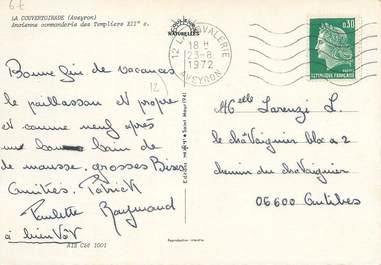 6€
LA COUVERTOIRADE (Aveyron)
Ancienne commanderie des Templiers XIIe s.
NATURELLES
12 LA CAVALERIE
18 H
23-8
1972
AVEYRON
0,30
REPUBLIQUE FRANÇAISE
12
Bonne fin de vacances
le paillasson est propre
et comme neuf après
un bain de
de mousse, grosses Bises
Amitiés, Patrick
Paulette Raymond
à bientôt
Melle Lorenzi L.
le châtaignier bloc a 2
chemin du chataignier
06600 Antibes
Reproduction interdite
A12 Cté 1001